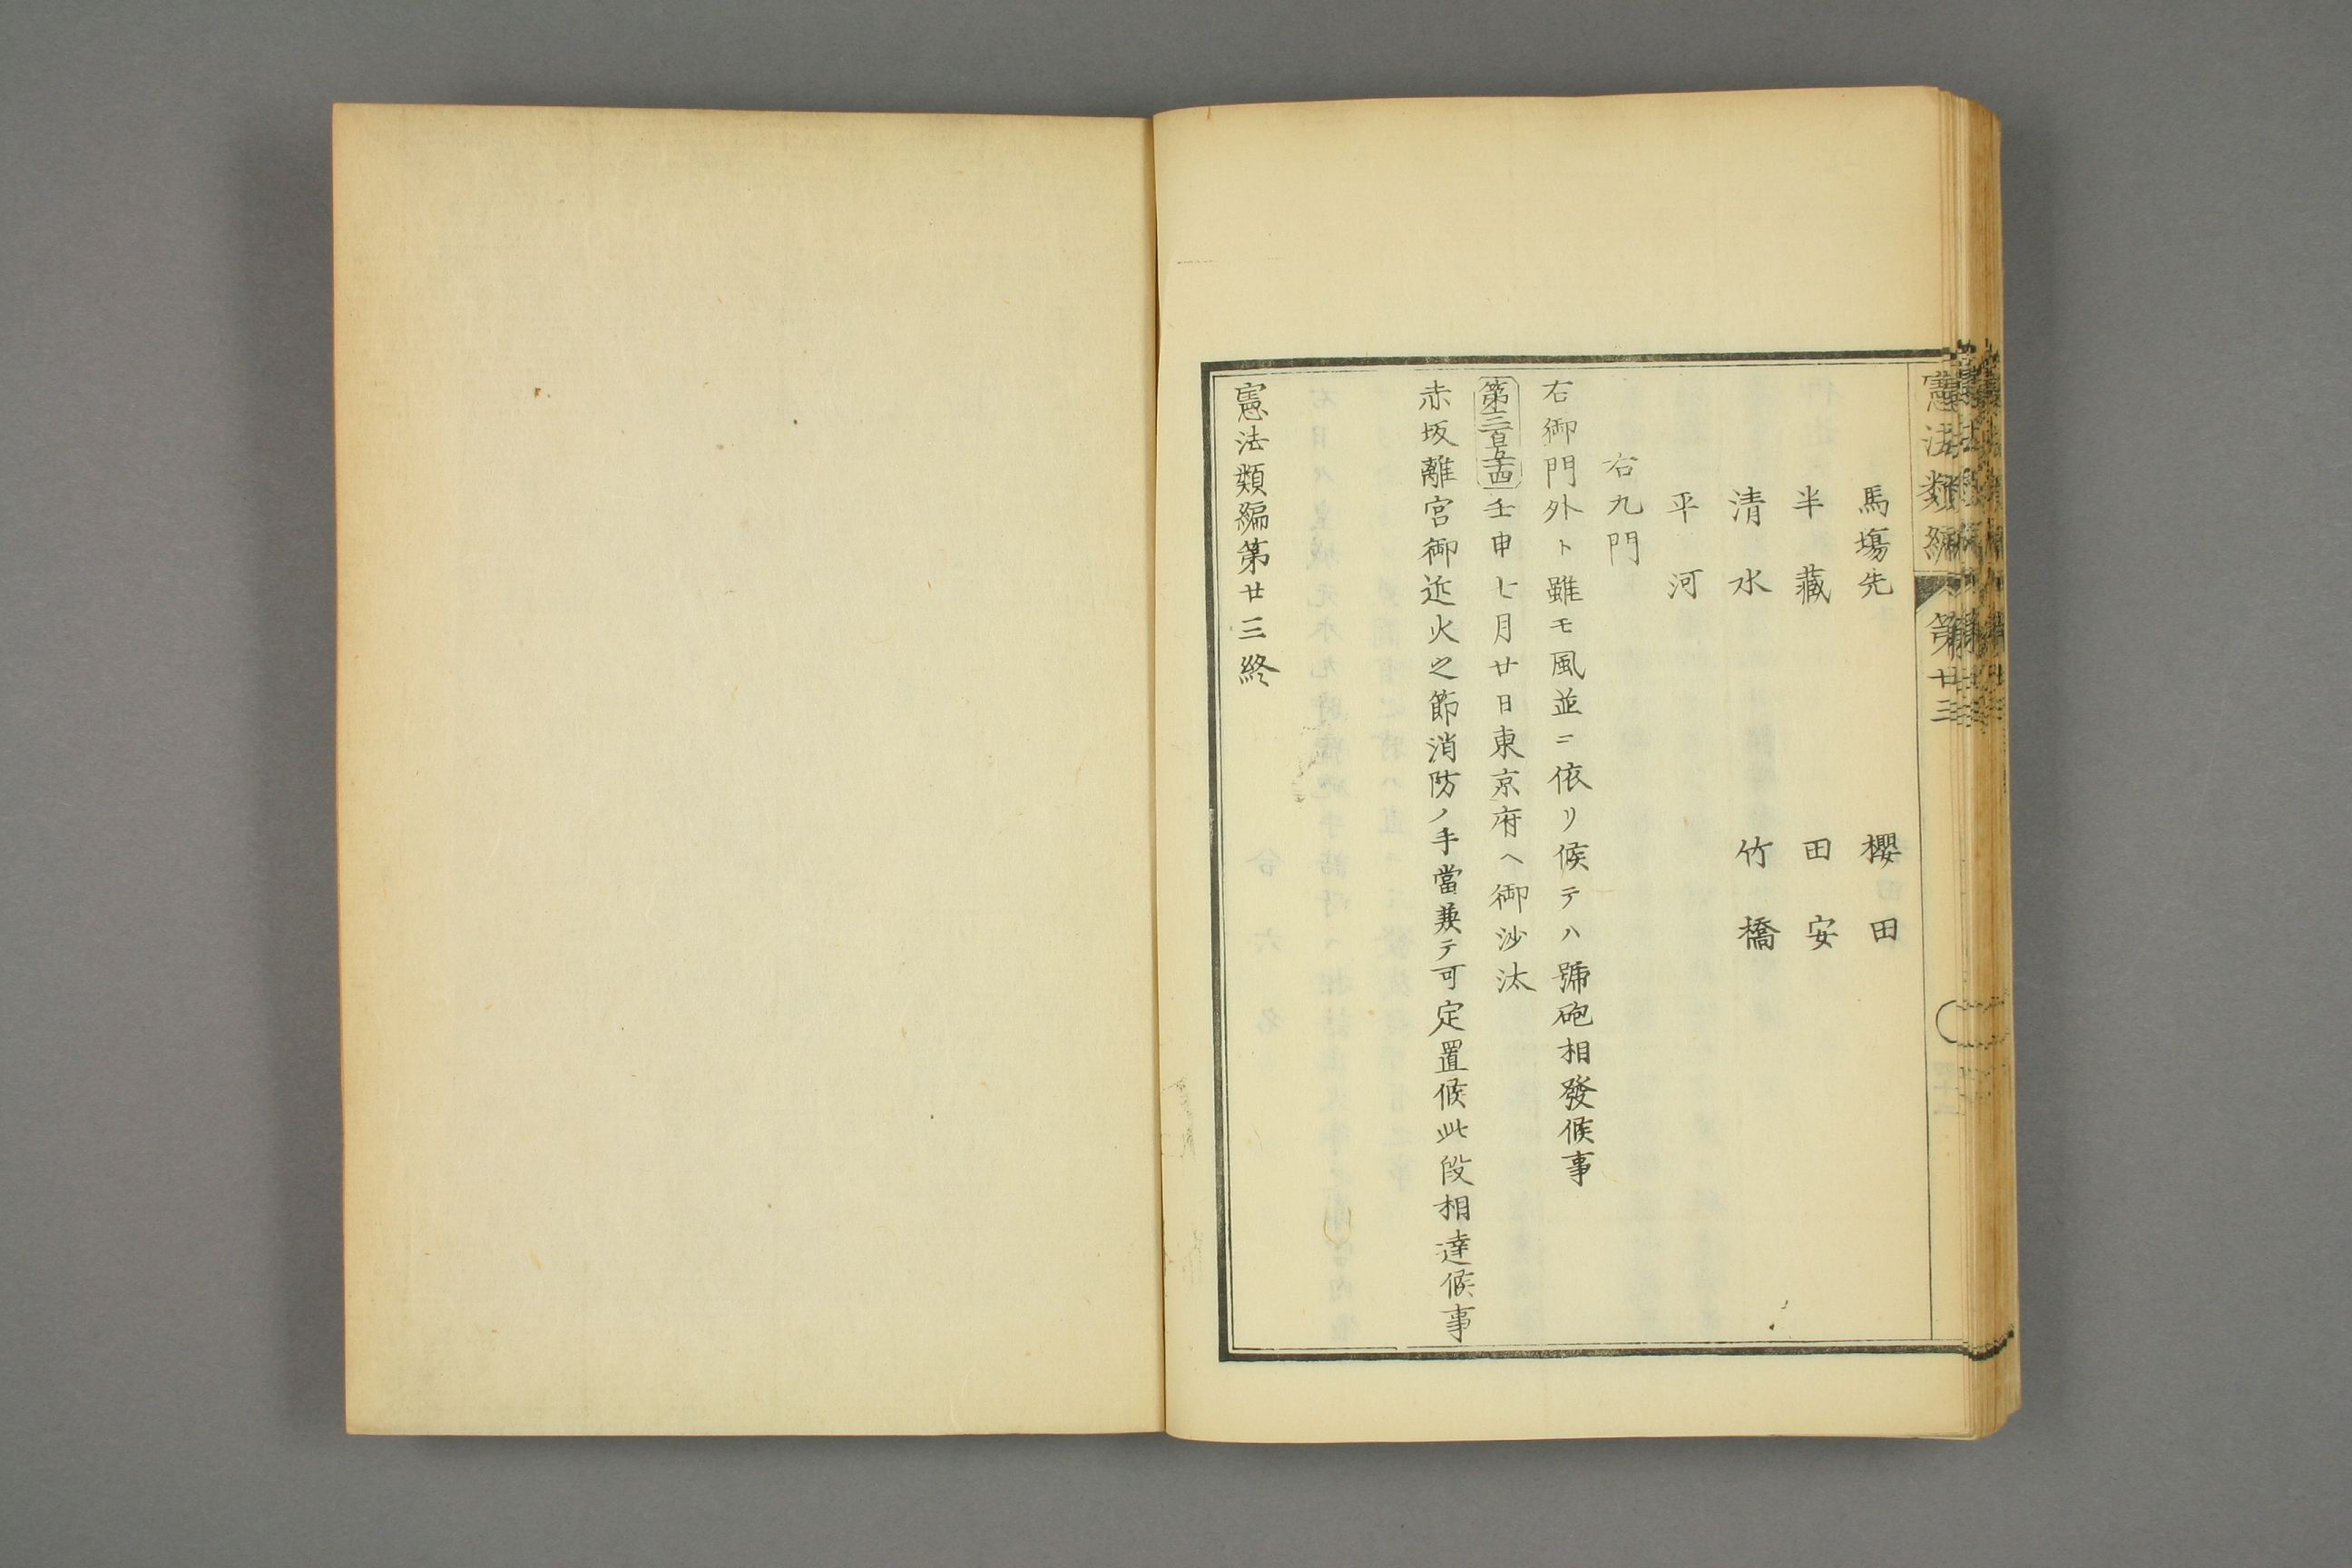 憲法類編 第廿三
馬塲先 櫻田
半藏 田安
清水 竹橋
平河
右九門
右御門外ト雖モ風並ニ依リ候テハ號砲相發候事
第三百五十四 壬申七月廿日東京府ヘ御沙汰
赤坂離宮御近火之節消防ノ手當兼テ可定置候此段相達候事
憲法類編第廿三終